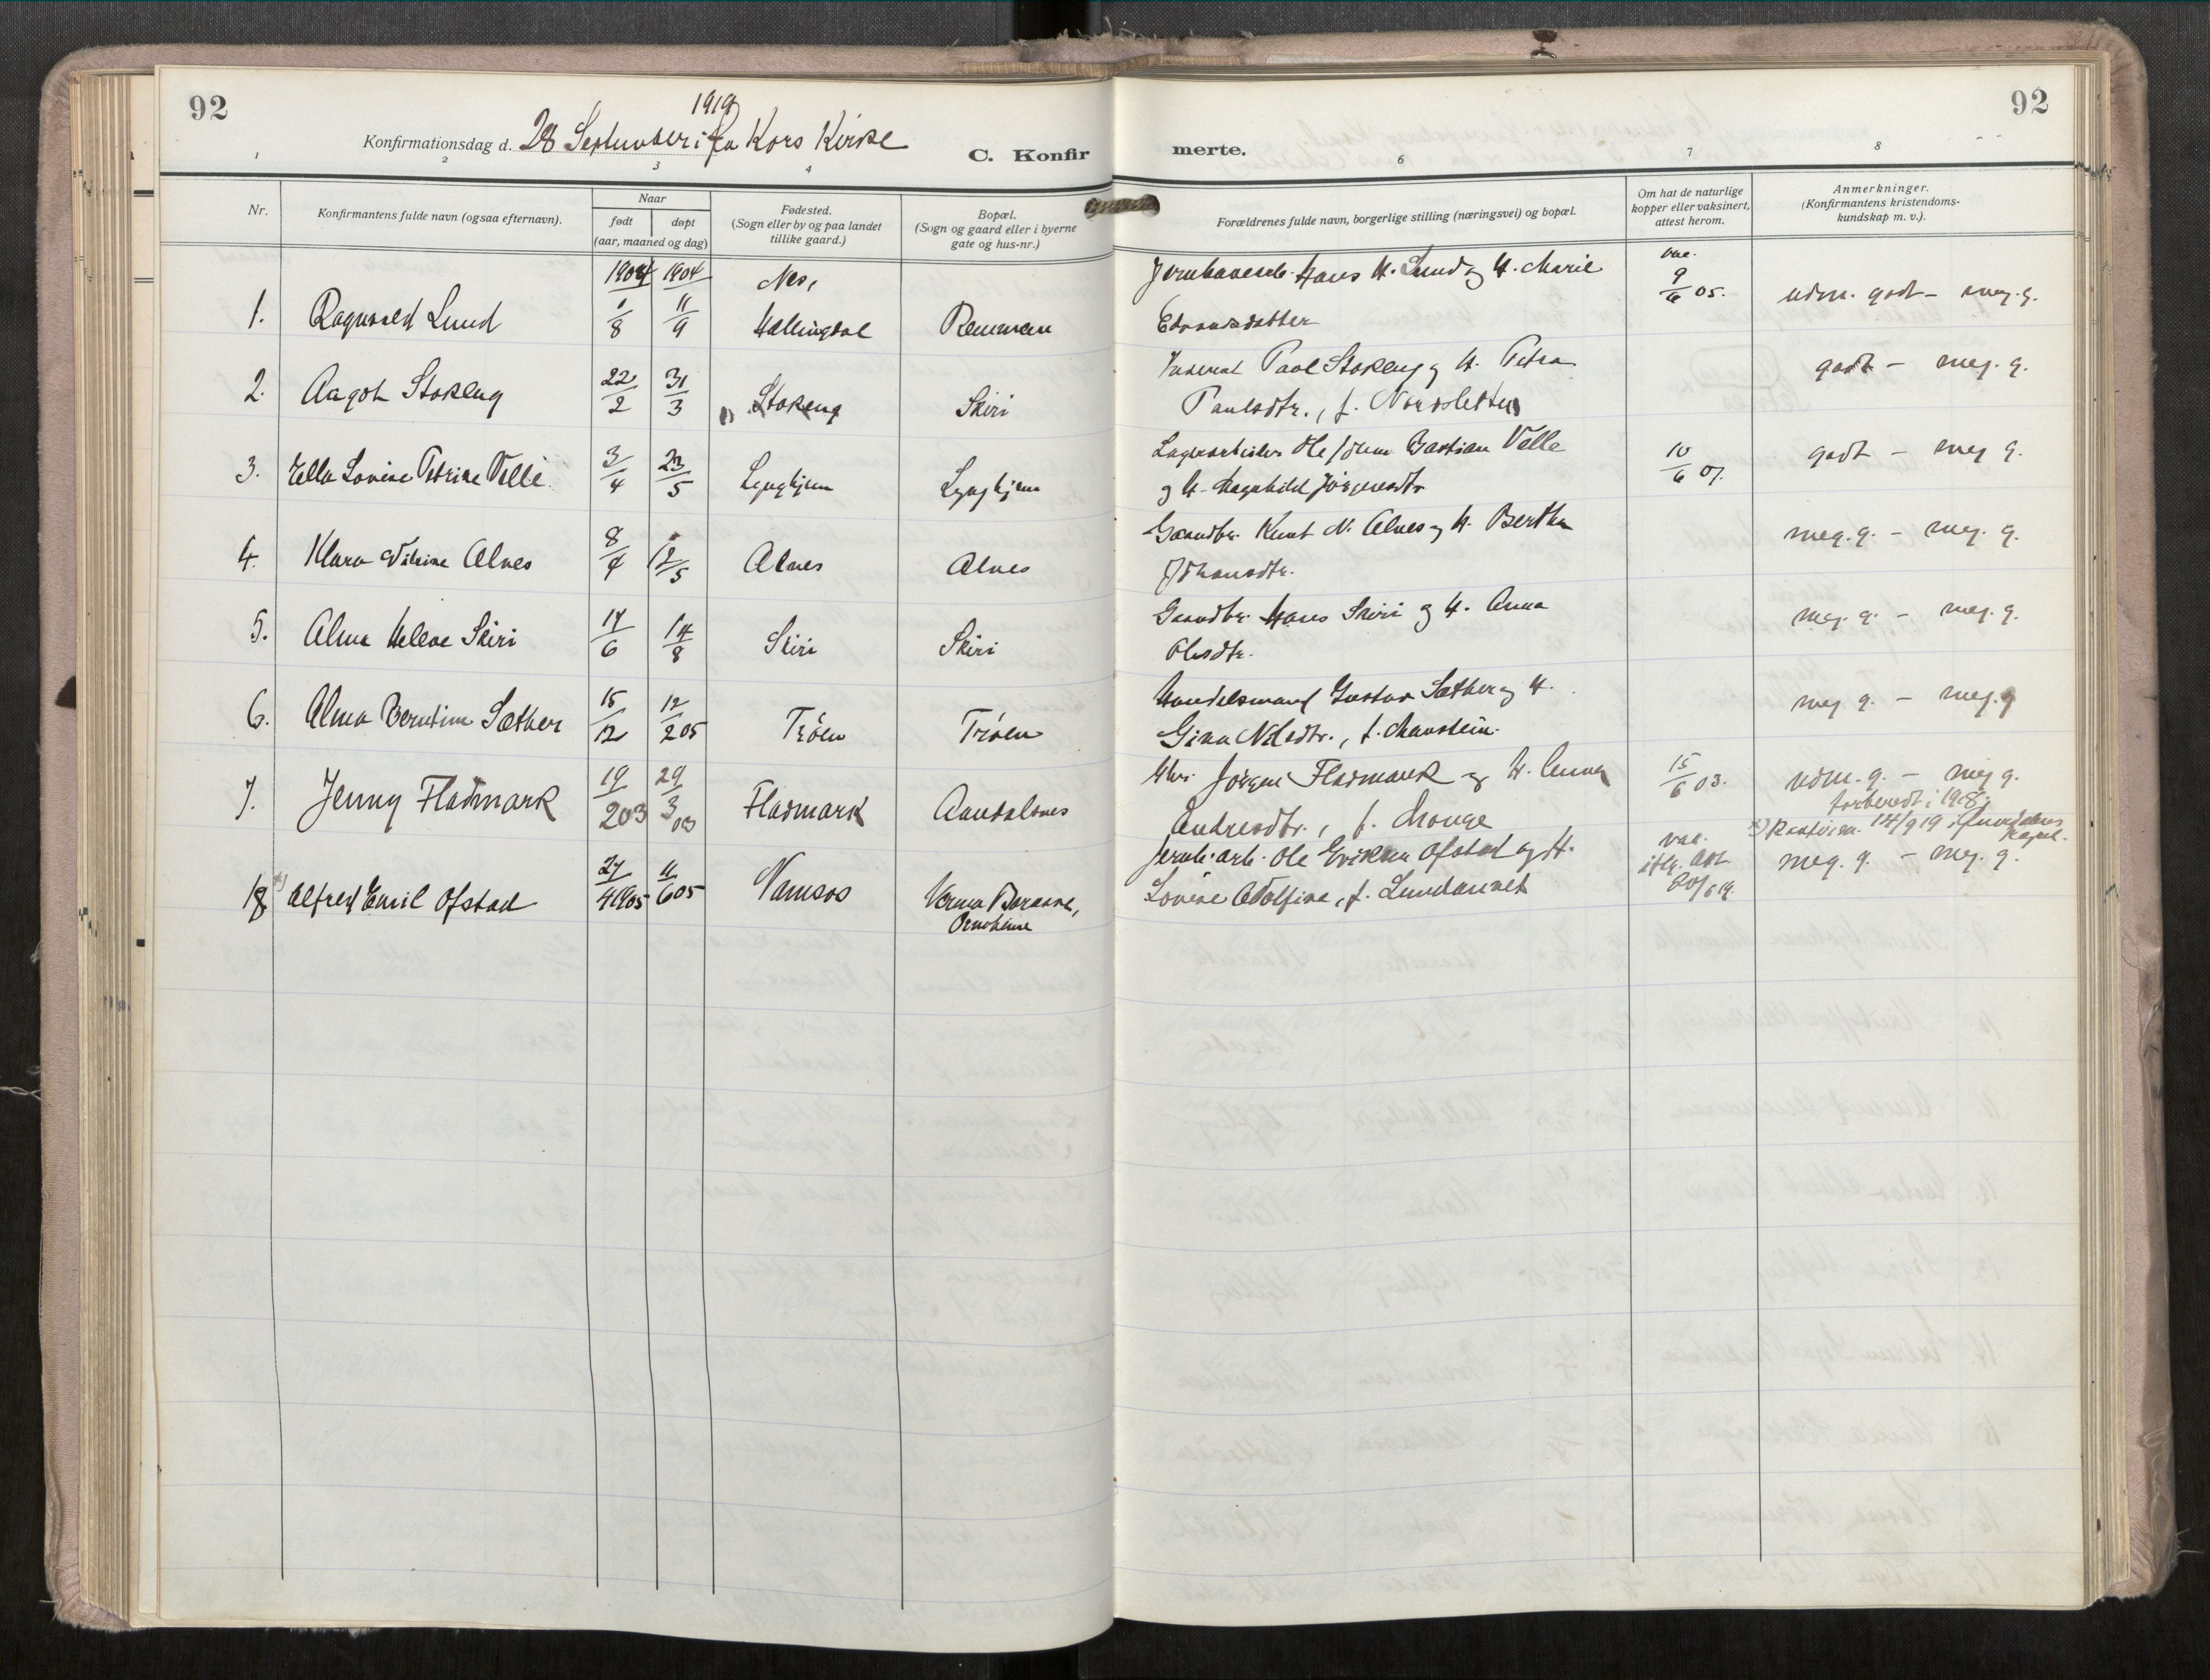 92
1919
Konfirmationsdag d. 28 September i Kors Kirke
C. Konfir
1
2
3
4
Nr.
Konfirmantens fulde navn (ogsaa efternavn).
Naar
født
døpt
(aar, maaned og dag)
Fødested.
(Sogn eller by og paa landet
tillike gaard.)
Bopæl.
(Sogn og gaard eller i byerne
gate og hus-nr.)
92
merte.
6
7
8
Forældrenes fulde navn, borgerlige stilling (næringsvei) og bopæl.
Om hat de naturlige
kopper eller vaksinert,
attest herom.
Anmerkninger.
(Konfirmantens kristendoms-
kundskap m. v.).
1904 1904 Nes, Hans H. Lund og H. Marie vac.
1. Ragnvald Lund 1/8 11/9 Hallingdal Remmem Edvardsdatter 9/6 05. udm. godt - meg. g.
2. Aagot Stokeng 22/2 31/3 Stokeng Skiri Paul Stokeng og H. Petra godt - meg. g.
Paulsdtr., f. Nordsletten
3. Ella Lovise Petrine Velle 3/4 23/5 Lynghjem Lynghjem Lagerarbeider Ole Johan Bastian Velle 10/6 07. godt - meg g.
og H. Ragnhild Jørgensdtr
4. Klara Vilhine Alnes 8/4 12/5 Alnes Alnes Gaardbr. Knut N. Alnes og H. Bertha meg. g. - meg. g.
Johansdtr.
5. Alma Helene Skiri 14/6 14/8 Skiri Skiri Gaardbr. Hans Skiri og H. Anna meg. g. - meg. g.
Olesdtr.
6. Alma Berntine Sæther 15/12 12/2 05 Trøen Trøen Handelsmand Gustav Sæther og H. meg g. - meg. g
Gina Nilsdtr., f. Manstein.
7. Jenny Fladmark 19/2 03 29/3 03 Fladmark Aandalsnes Jörgen Fladmark og H. Anna 15/6 03. udm. g. - meg g.
Andresdtr., f. Monge forberedt i 1918.
x) 14/9 19 i
18 x) Alfred Emil Ofstad 27/4 1905 11/6 05 Namsos Verma Barakke, Jernb. arb. Ole Eriksen Ofstad og H. vac. meg. g. - meg. g.
Ormheim Lovise Adolfine, f. Lundamnet iflg. att.
20/6 19.